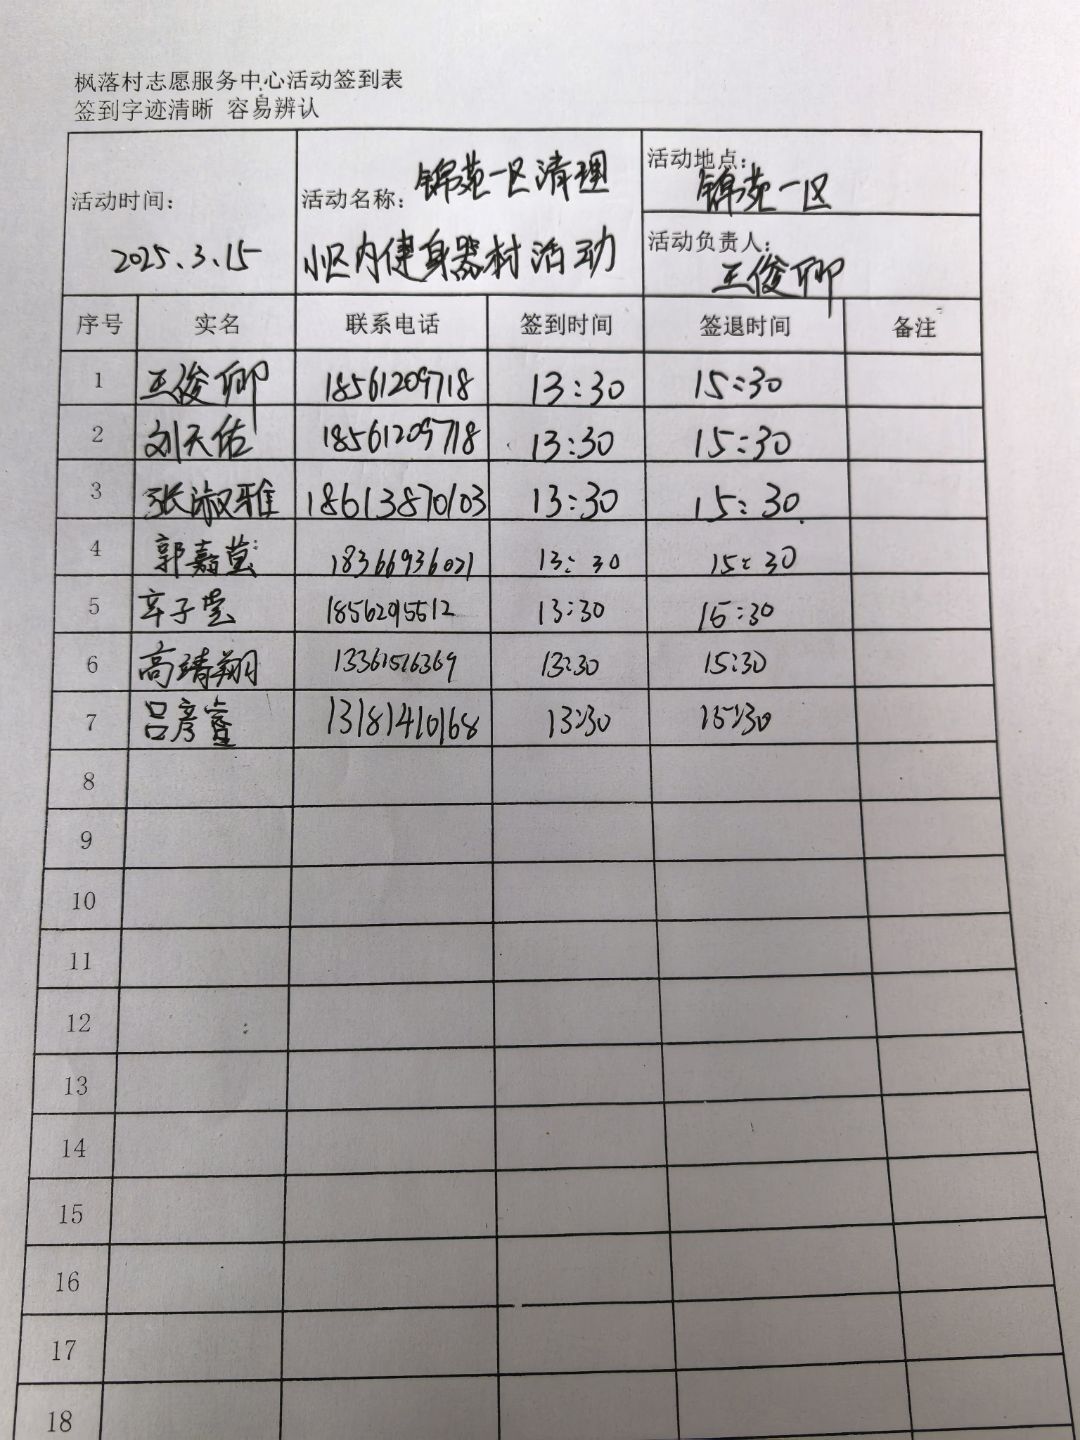 枫落村志愿服务中心活动签到表
签到字迹清晰 容易辨认
活动时间： 2025.3.15
活动名称： 锦苑一区清理小区内健身器材活动
活动地点： 锦苑一区
活动负责人： 王俊卿
序号 实名 联系电话 签到时间 签退时间 备注
1 王俊卿 18561209718 13:30 15:30
2 刘天佑 18561209718 13:30 15:30
3 张淑雅 18613870103 13:30 15:30
4 郭嘉莹 18366936021 13:30 15:30
5 辛子莹 18562015512 13:30 15:30
6 高靖翔 13361526369 13:30 15:30
7 吕彦萱 13181410168 13:30 15:30
8
9
10
11
12
13
14
15
16
17
18